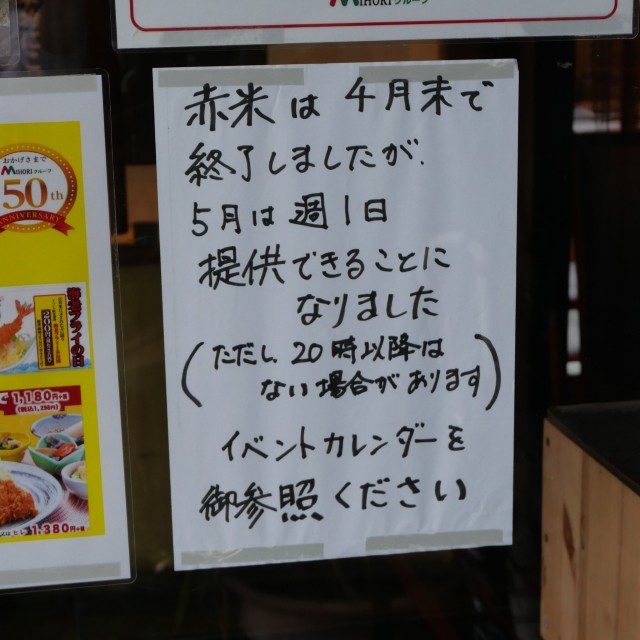 MIHORIグループ
赤米は 4月末で
終了しましたが、
5月は週1日
提供できることに
なりました
(ただし 20時以降は
ない場合があります)
イベントカレンダーを
御参照ください
おかげさまで
MIHORIグループ
50th
ANNIVERSARY
1,180円+税
(税込1,298円)
1,380円+税